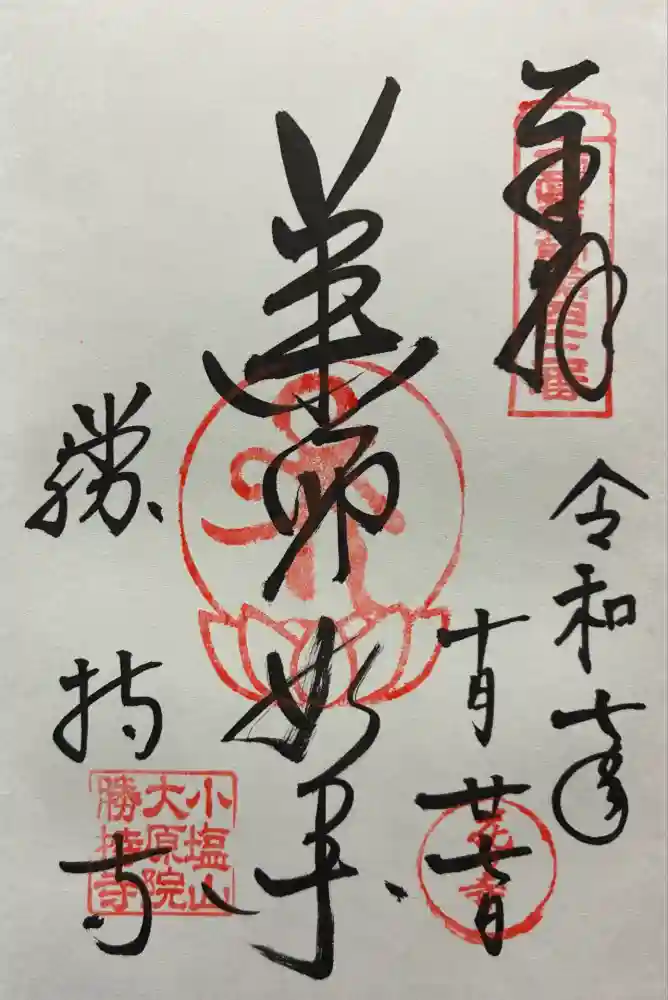 奉拝
令和七年
十月廿七日
薬師如来
勝持寺
花の寺
小塩山
大原院
勝持寺